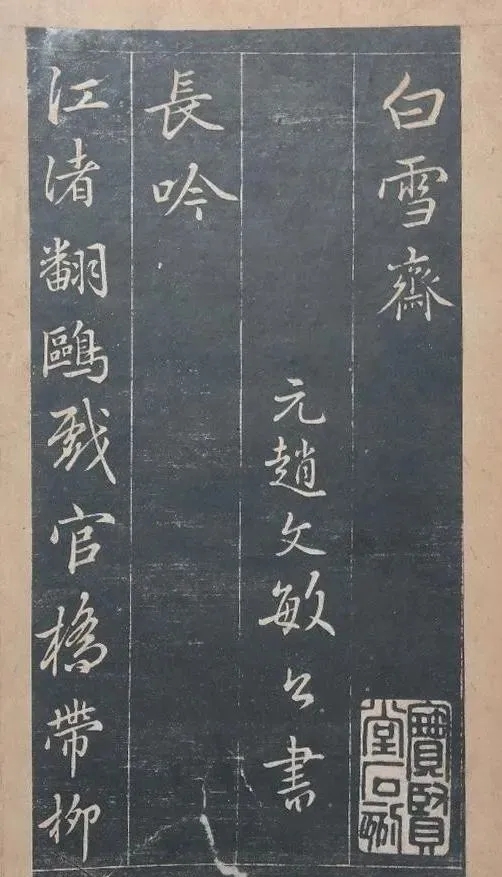 白雪齋
寶賢堂石刻
元趙文敏公書
長吟
江渚翻鷗戲官橋帶柳